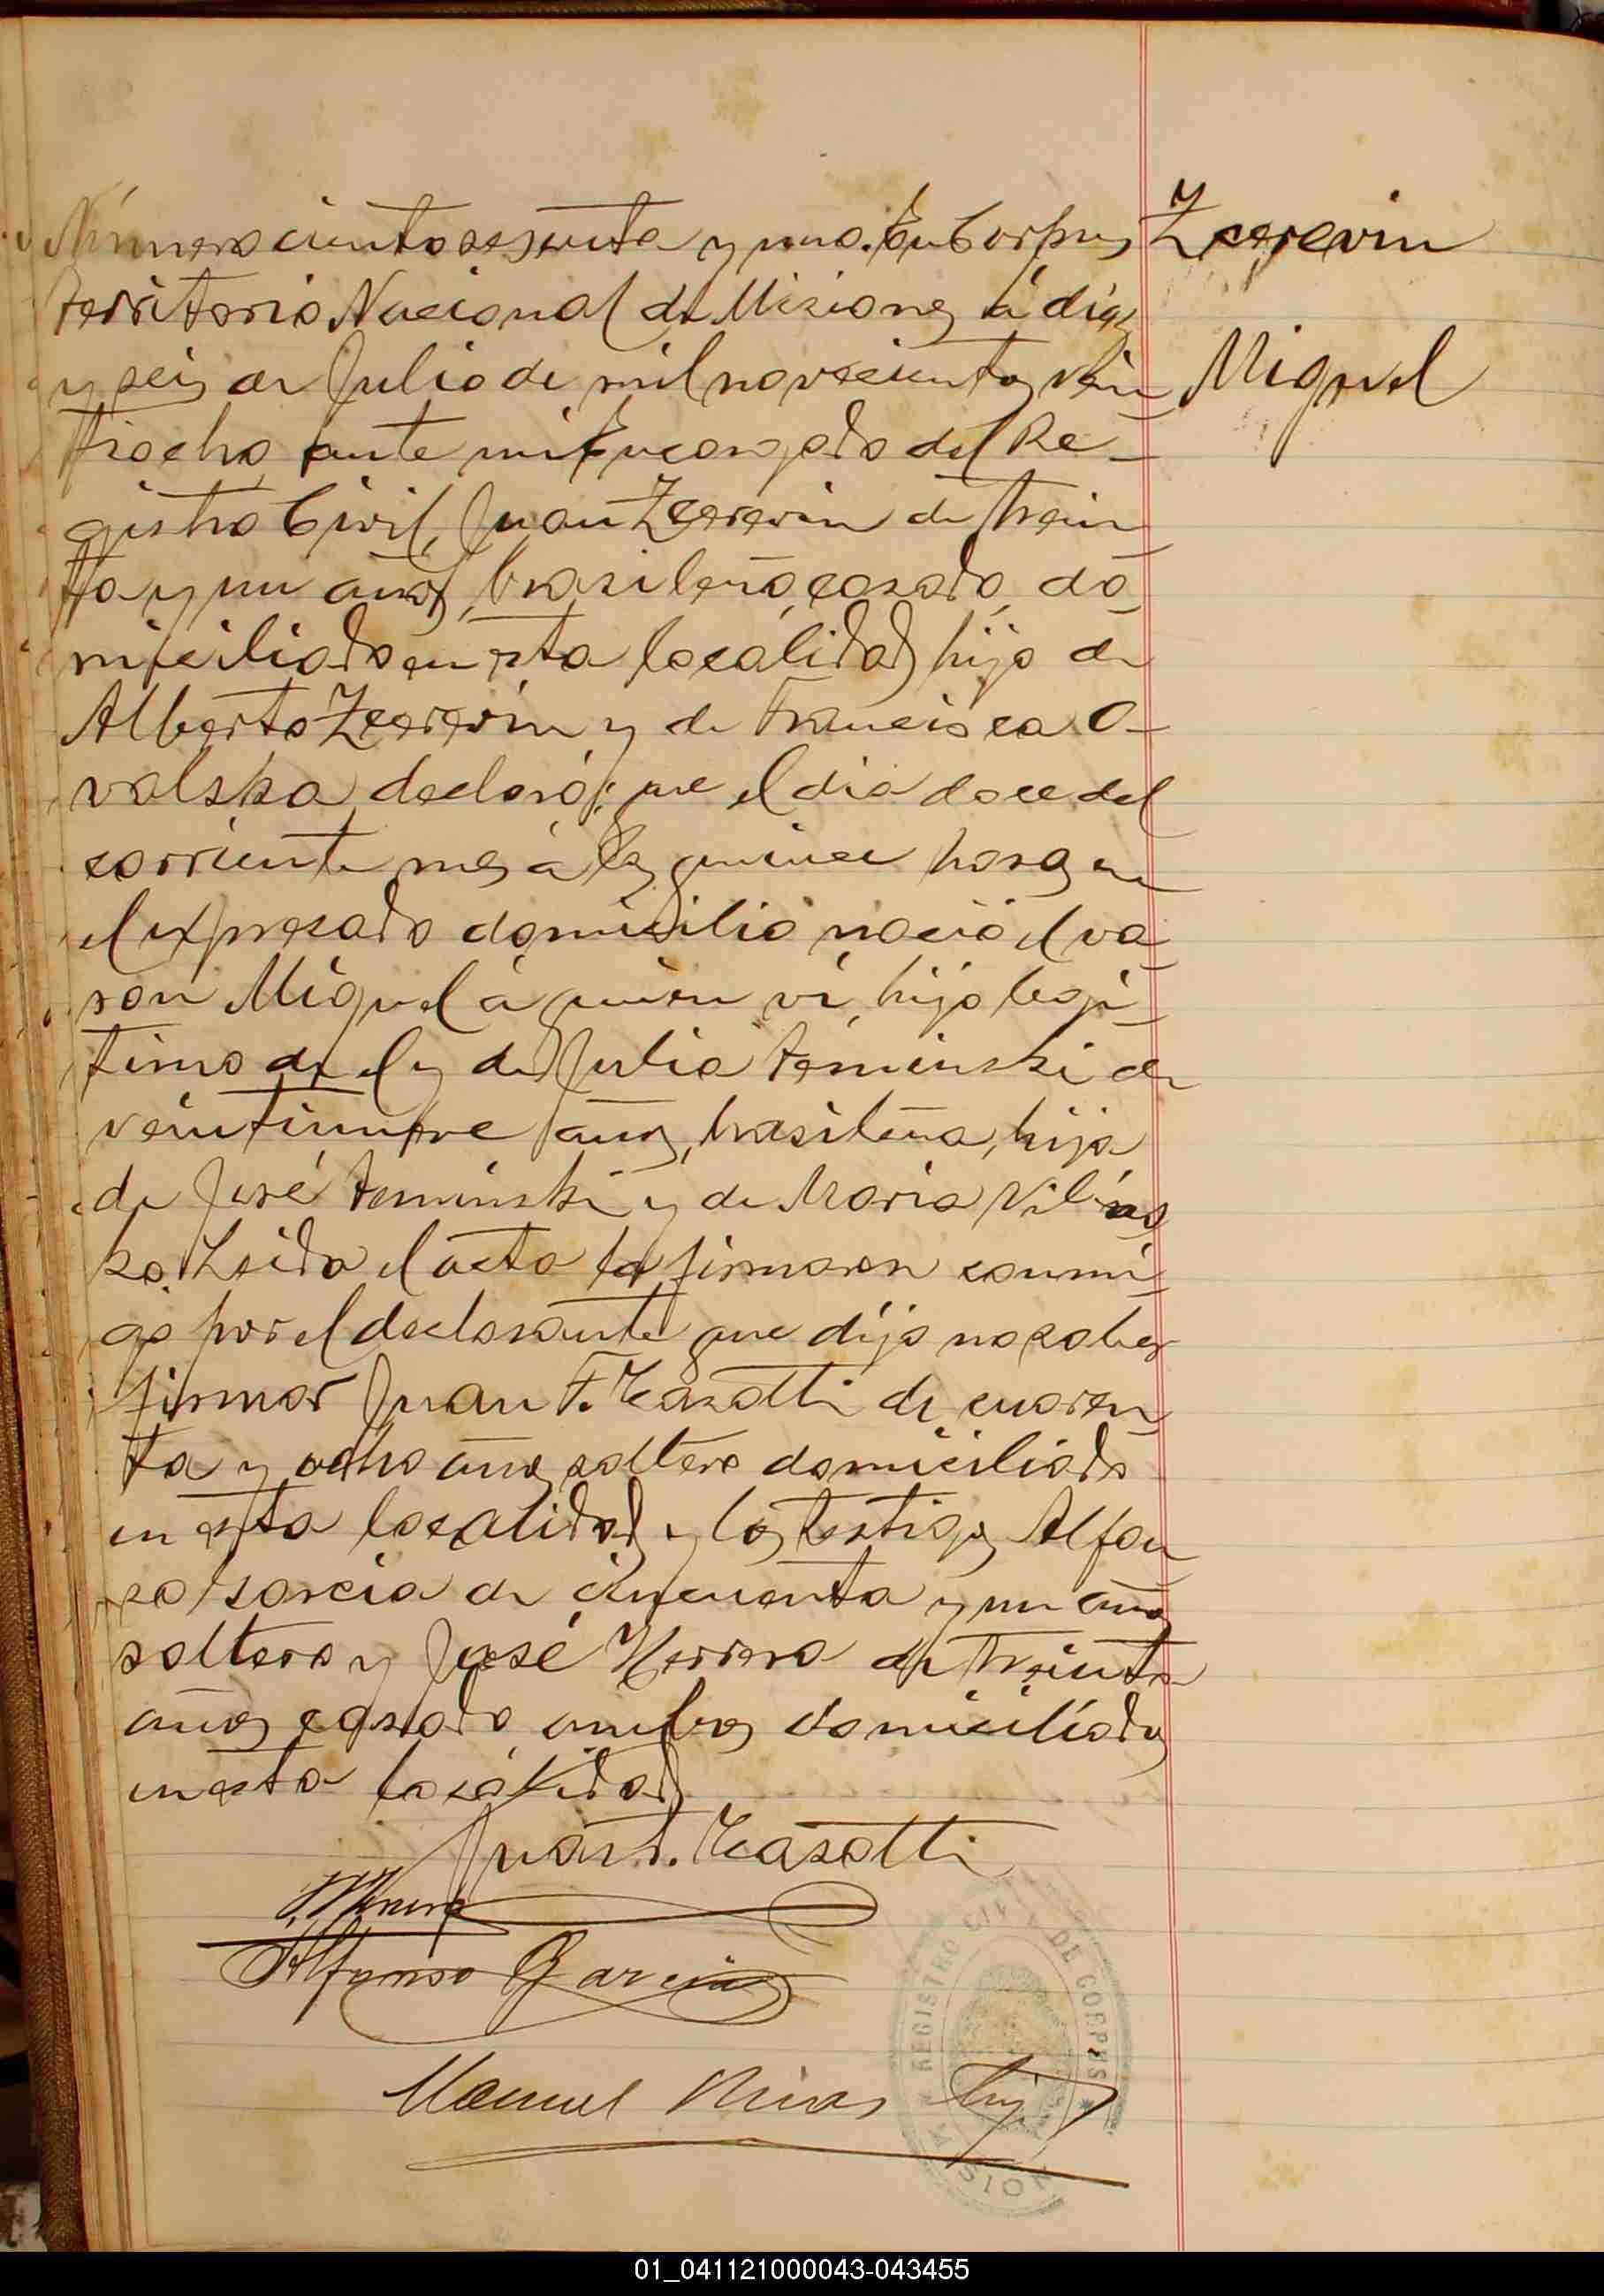 Número ciento sesenta y uno. En Corpus
Zcerevin
territorio Nacional de Misiones á diez
y seis de Julio de mil novecientos vein
Miguel
tiocho ante mi Encargado del Re-
gistro Civil, Juan Zcerevin de trein
ta y un años, brasileño, casado, do
miciliado en esta localidad, hijo de
Alberto Zcerevin y de Francisca O-
valska, declaró: que el dia doce del
corriente mes á las quince horas en
el expresado domicilio nació el va
ron Miguel á quien ví, hijo legí
timo de el y de Julia Keminski de
veintinueve años, brasileña, hija
de José Keminski y de Maria Vilinas
ka. Leida el acta la firmaron conmi
go por el declarante que dijo no saber
firmar Juan F. Casotti de cuaren
ta y ocho años soltero domiciliado
en esta localidad y los testigos Alfon
so Garcia de cincuenta y un años
soltero y José Herrera de treinta
años casado, ambos domiciliados
en esta localidad.
Juan F. Casotti
Alfonso Garcia
Manuel Rivas hijo
REGISTRO CIVIL DE CORPUS
MISIONES
01_041121000043-043455